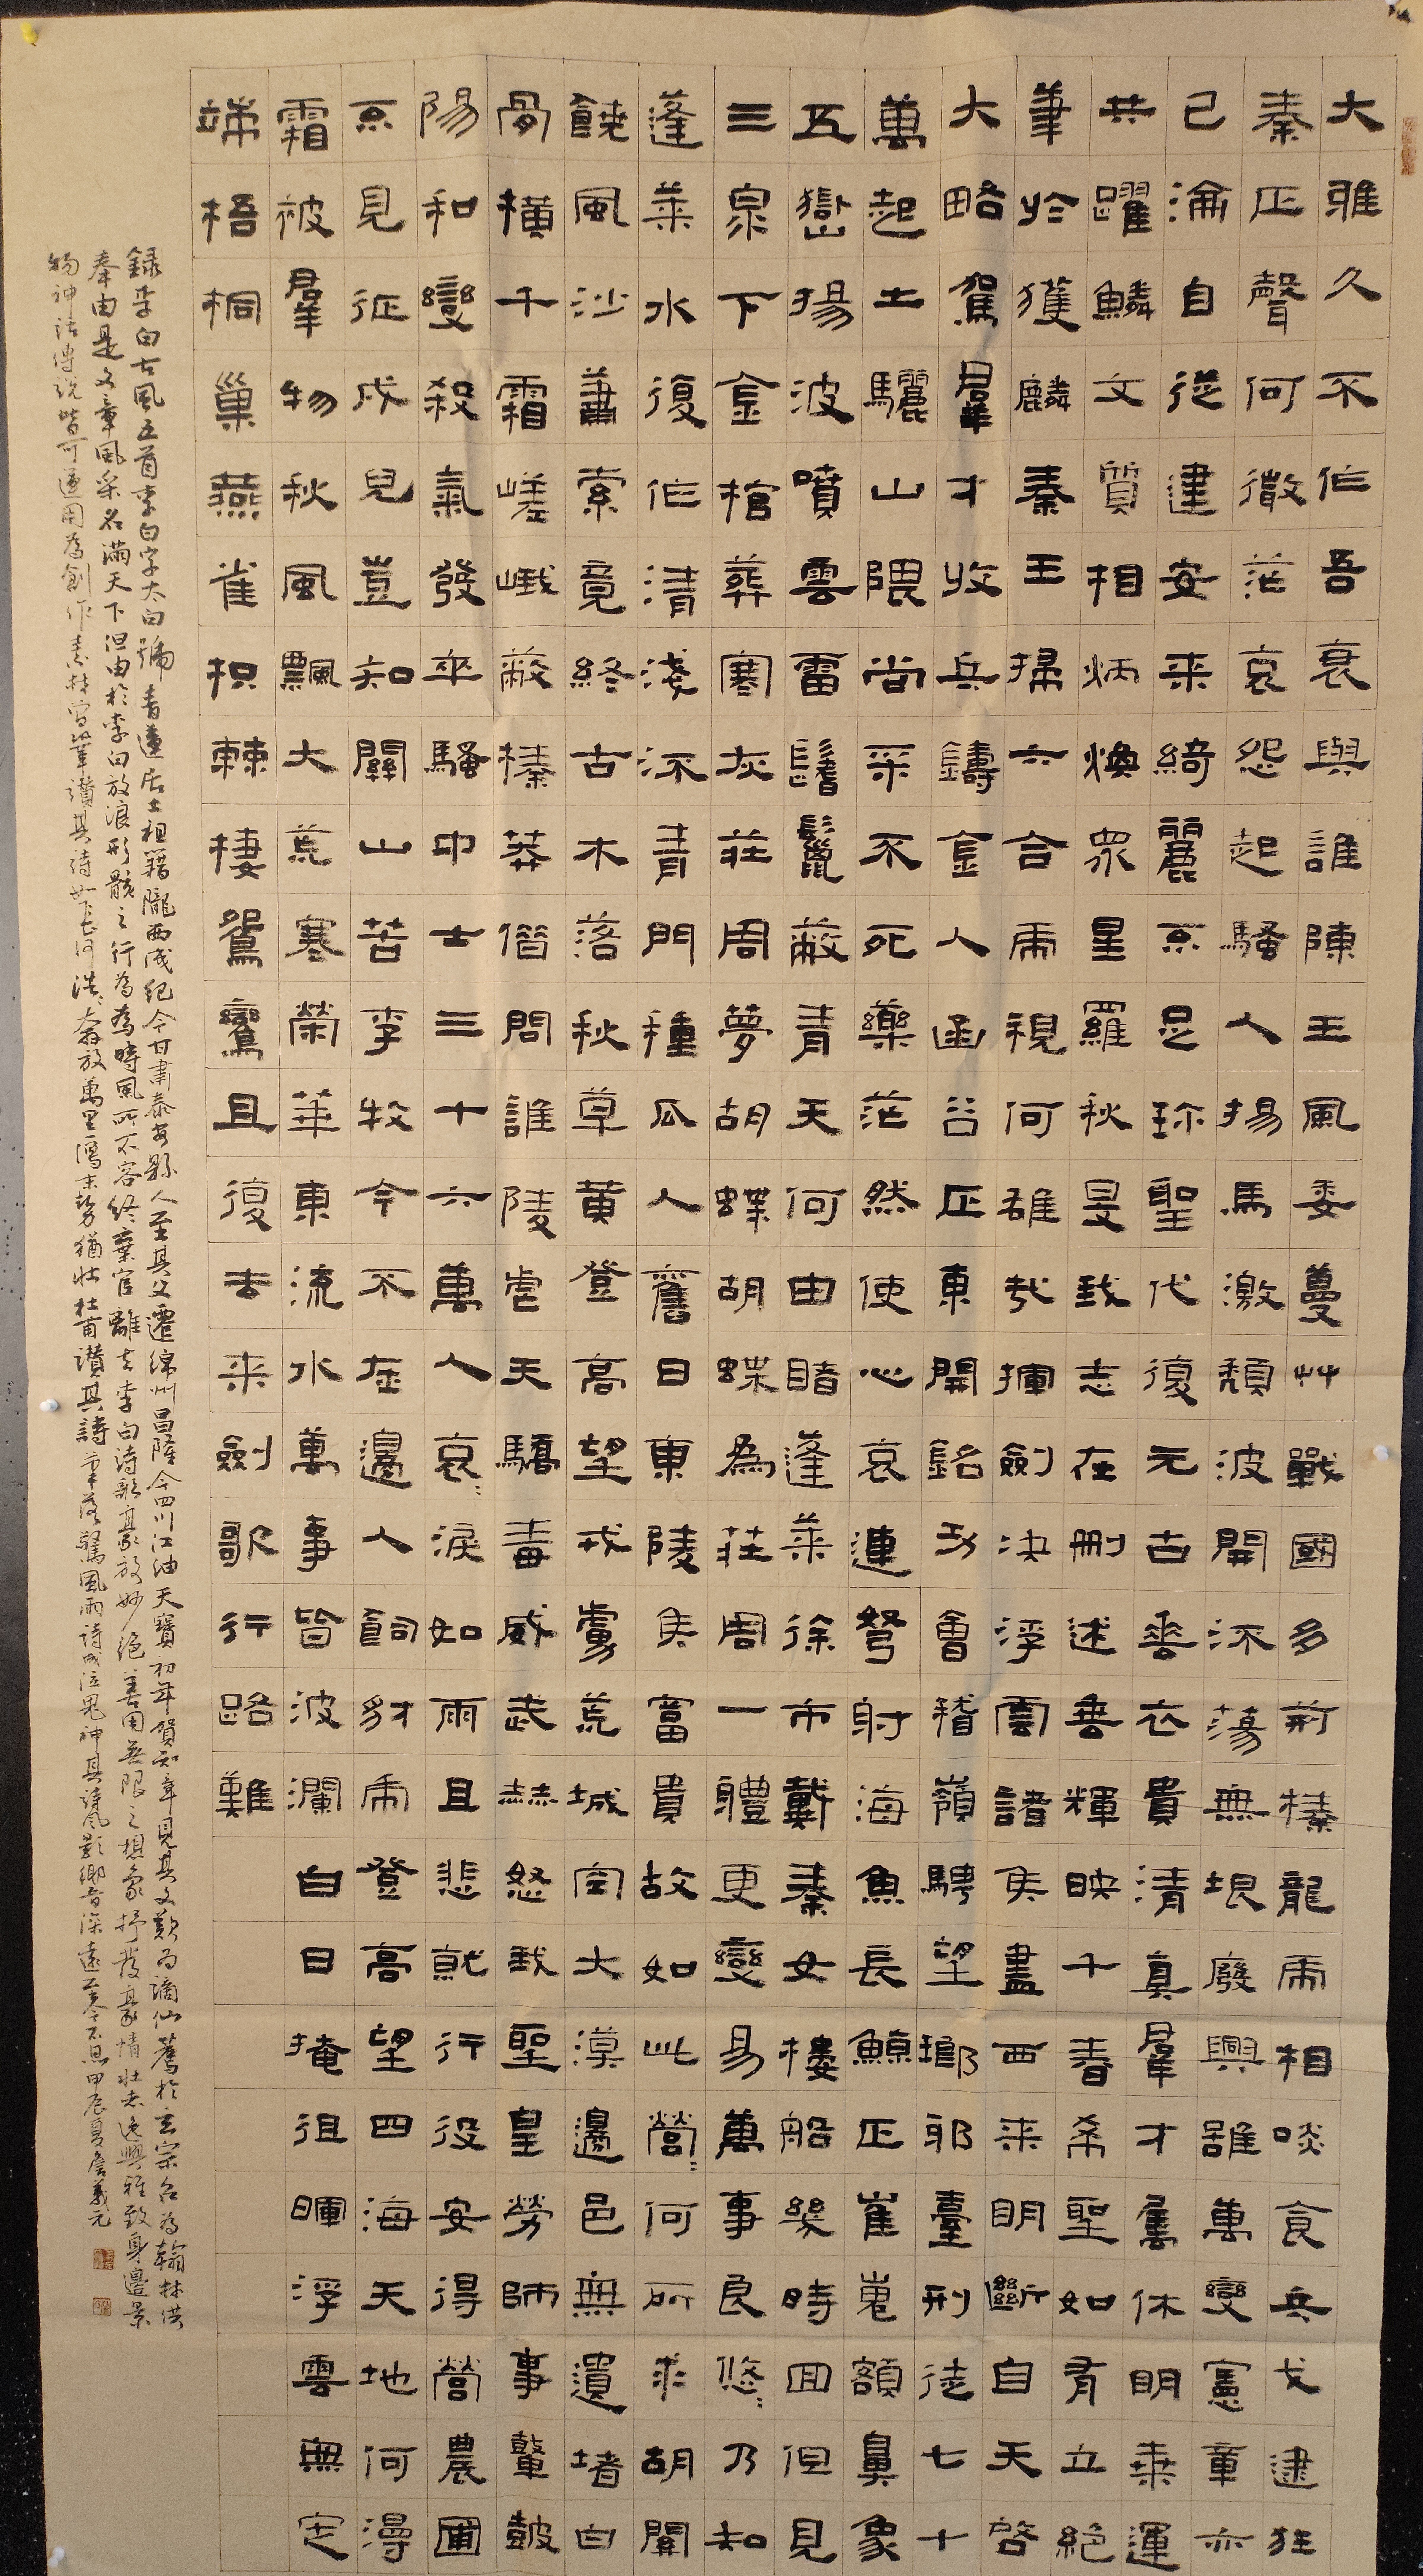 大雅久不作吾衰與誰陳王風委蔓艸戰國多荊榛龍虎相啖食兵戈逮狂
秦正聲何微茫哀怨起騷人揚馬激頹波開流蕩無垠廢興雖萬變憲章亦
已淪自從建安来綺麗不足珍聖代復元古垂衣貴清真羣才屬休明乘運
共躍鱗文質相炳煥眾星羅秋旻我志在刪述垂輝映千春希聖如有立絕
筆於獲麟秦王掃六合虎視何雄哉揮劍決浮雲諸侯盡西来明斷自天啓
大略駕羣才收兵鑄金人函谷正東開銘功會稽嶺騁望瑯邪臺刑徒七十
萬起土驪山隈尚采不死藥茫然使心哀連弩射海魚長鯨正崔嵬額鼻象
五嶽揚波噴雲雷鬐鬣蔽青天何由睹蓬萊徐市載秦女樓船幾時回但見
三泉下金棺葬寒灰莊周夢胡蝶胡蝶為莊周一體更變易萬事良悠〻乃知
蓬萊水復作清淺流青門種瓜人舊日東陵侯富貴故如此營〻何所求胡關
饒風沙蕭索竟終古木落秋草黃登高望戎虜荒城空大漠邊邑無遺堵白
骨橫千霜嵯峨蔽榛莽借問誰陵虐天驕毒威武赫怒我聖皇勞師事鼙鼓
陽和變殺氣發卒騷中士三十六萬人哀〻淚如雨且悲就行役安得營農圃
不見征戍兒豈知關山苦李牧今不在邊人飼豺虎登高望四海天地何漫
霜被羣物秋風飄大荒寒榮華東流水萬事皆波瀾白日掩徂暉浮雲無定
端梧桐巢燕雀枳棘棲鴛鸞且復去来劍歌行路難
録李白古風五首李白字太白號青蓮居士祖籍隴西成紀今甘肅泰安縣人至其父遷綿州昌隆今四川江油天寶初年賀知章見其文歎為謫仙薦於玄宗召為翰林供
奉由是文章風采名滿天下但由於李白放浪形骸之行為為時風所不容終棄官離去李白詩歌豪放妙絕善用無限之想象抒發豪情壯志逸興雅致身邊景
物神話傳說皆可運用為創作素材讚其詩如長河浩〻奔放萬里末勢猶壯杜甫讚其詩筆落驚風雨詩成泣鬼神其詩風影響音深遠至今不息甲辰夏詹義元